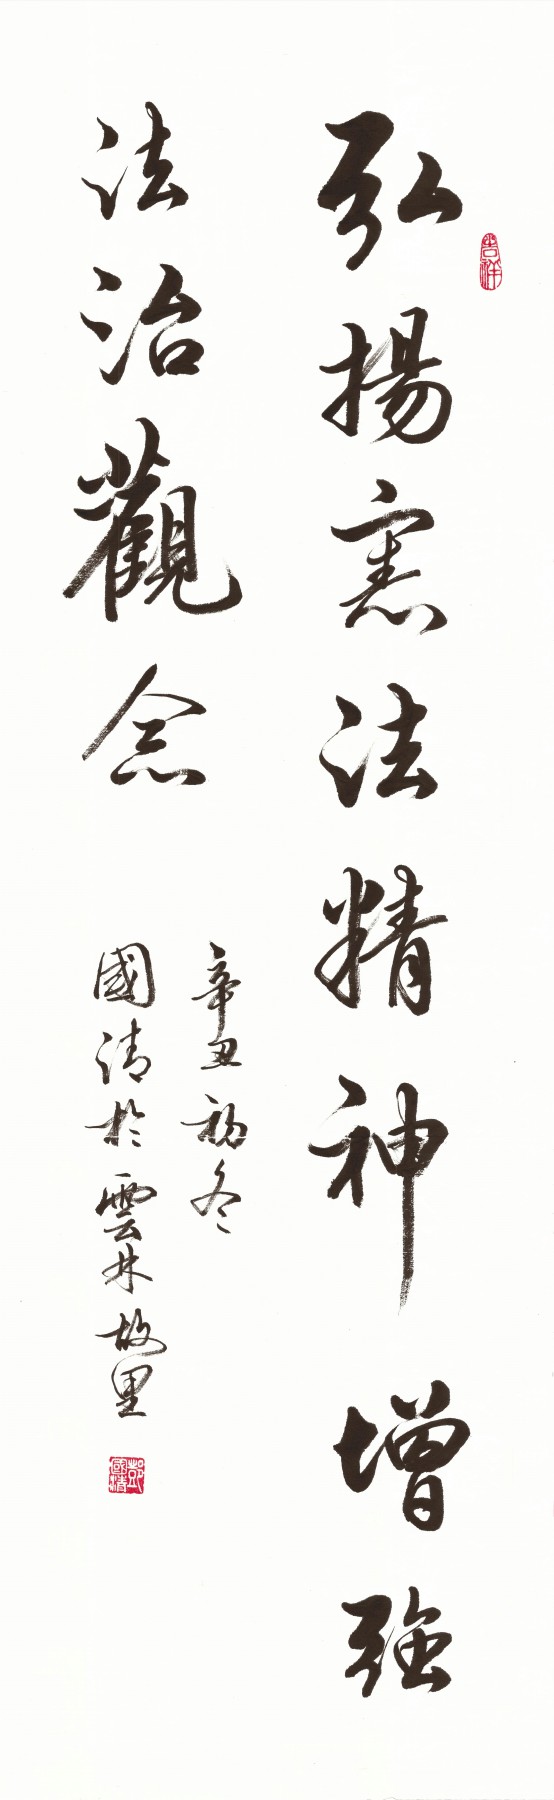 弘揚憲法精神增強
法治觀念
辛丑初冬
國清於雲林故里
吉祥
彭國清